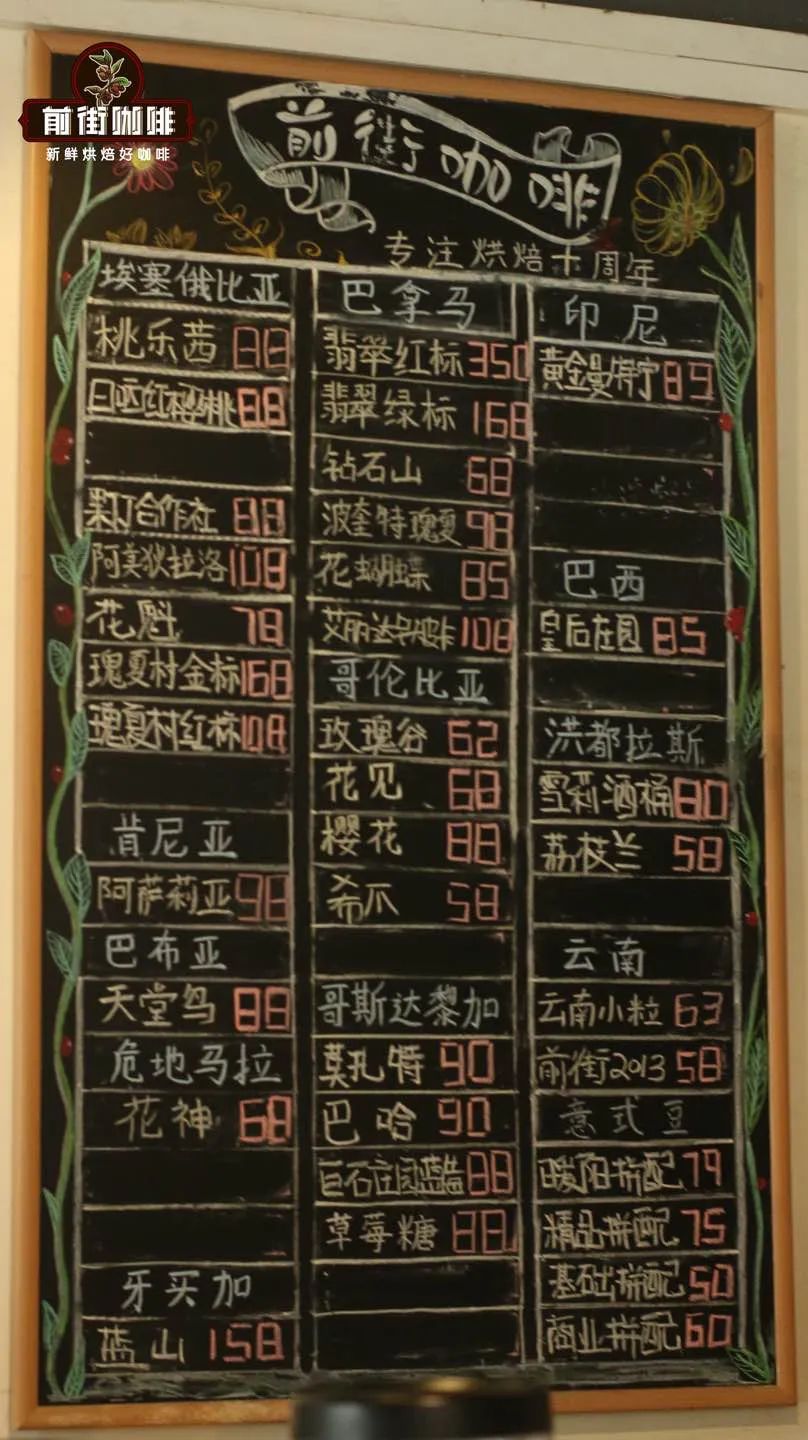 前街咖啡
新鲜烘焙好咖啡
前街咖啡
专注烘焙十周年
埃塞俄比亚
桃乐茜 88
日晒红樱桃 88
果丁合作社 88
阿美狄拉洛 108
花魁 78
瑰夏村金标 168
瑰夏村红标 108
肯尼亚
阿萨莉亚 98
巴布亚
天堂鸟 88
危地马拉
花神 68
牙买加
蓝山 158
巴拿马
翡翠红标 350
翡翠绿标 168
钻石山 68
波奎特瑰夏 98
花蝴蝶 85
艾丽达 108
哥伦比亚
玫瑰谷 62
花见 68
樱花 88
希爪 58
哥斯达黎加
莫扎特 90
巴哈 90
巨石庄园蓝 88
草莓糖 88
印尼
黄金曼特宁 89
巴西
皇后庄园 85
洪都拉斯
雪莉酒桶 80
荔枝兰 58
云南
云南小粒 63
前街2013 58
意式豆
暖阳拼配 79
精品拼配 75
基础拼配 50
商业拼配 60